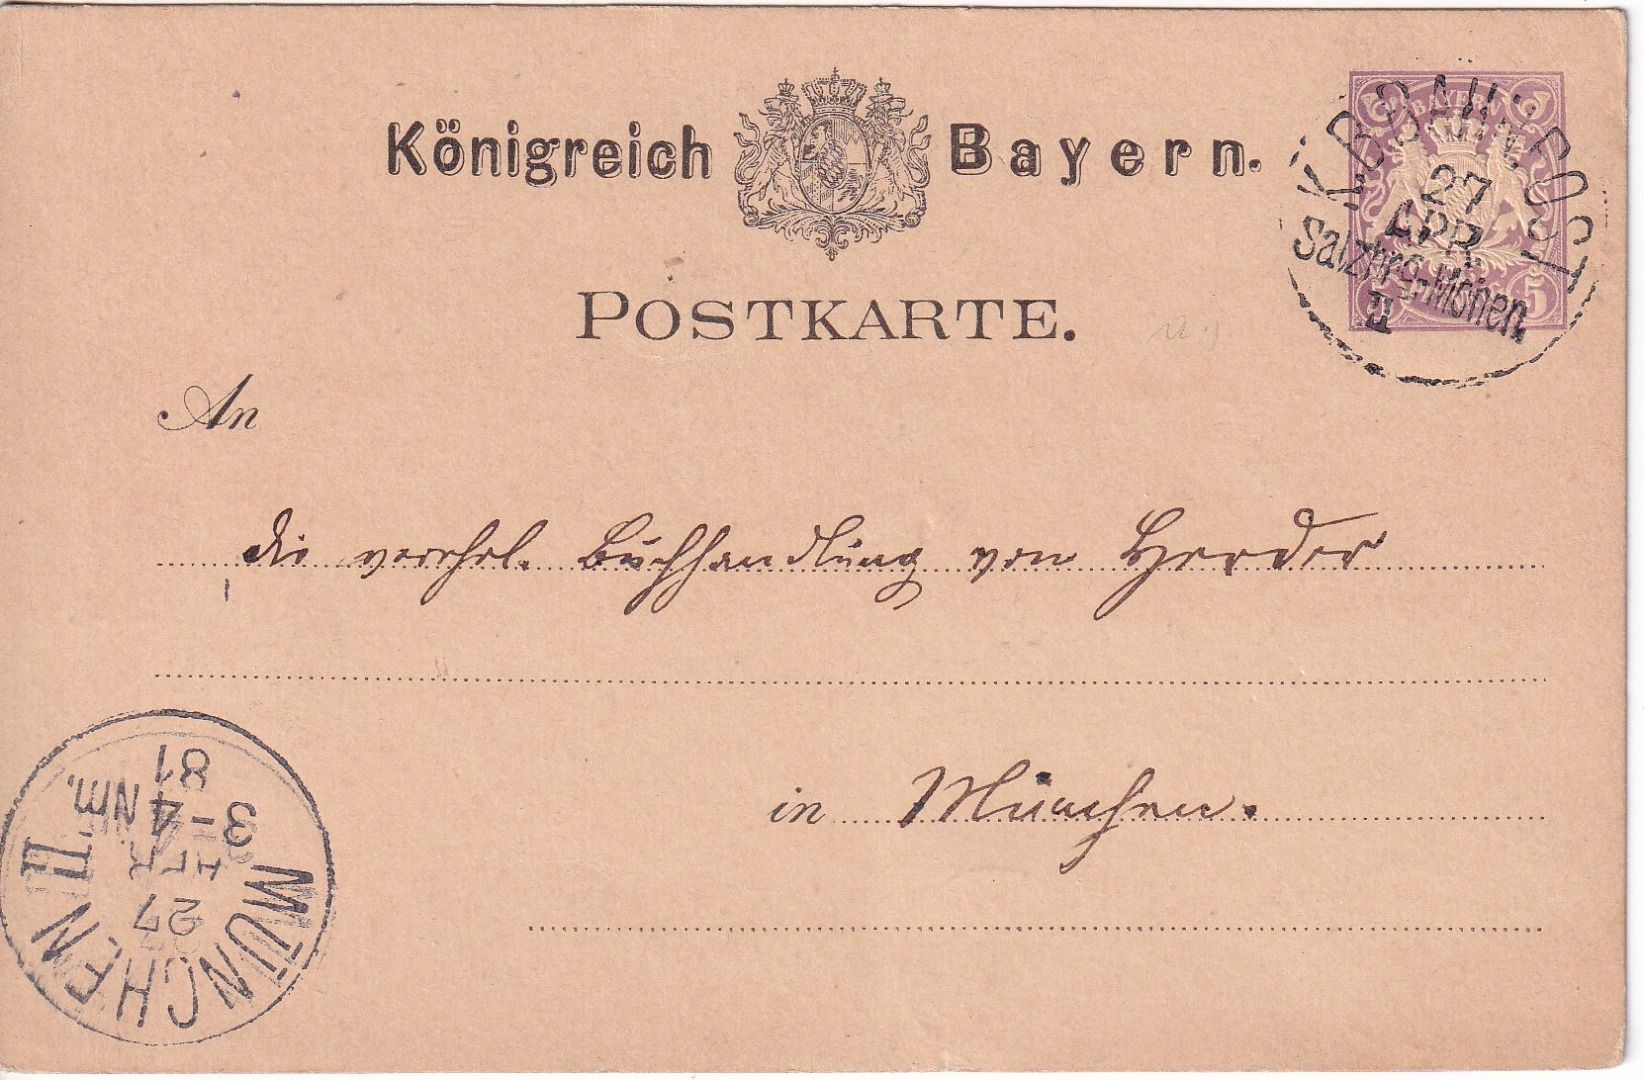 Königreich Bayern.
BAYERN
K.B.BAHNPOST
27
APR.
Salzbrg-Mchen.
II
5
POSTKARTE.
An
die verehrl. Buchhandlung von Herder
in München.
MÜNCHEN II.
27
APR
3-4 Nm.
81